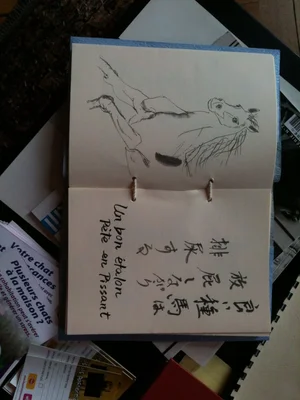 良い種馬は
放屁しつつ
排尿する
Un bon étalon
Pète en Pissant
Votre chat
plusieurs chats
à la maison ?